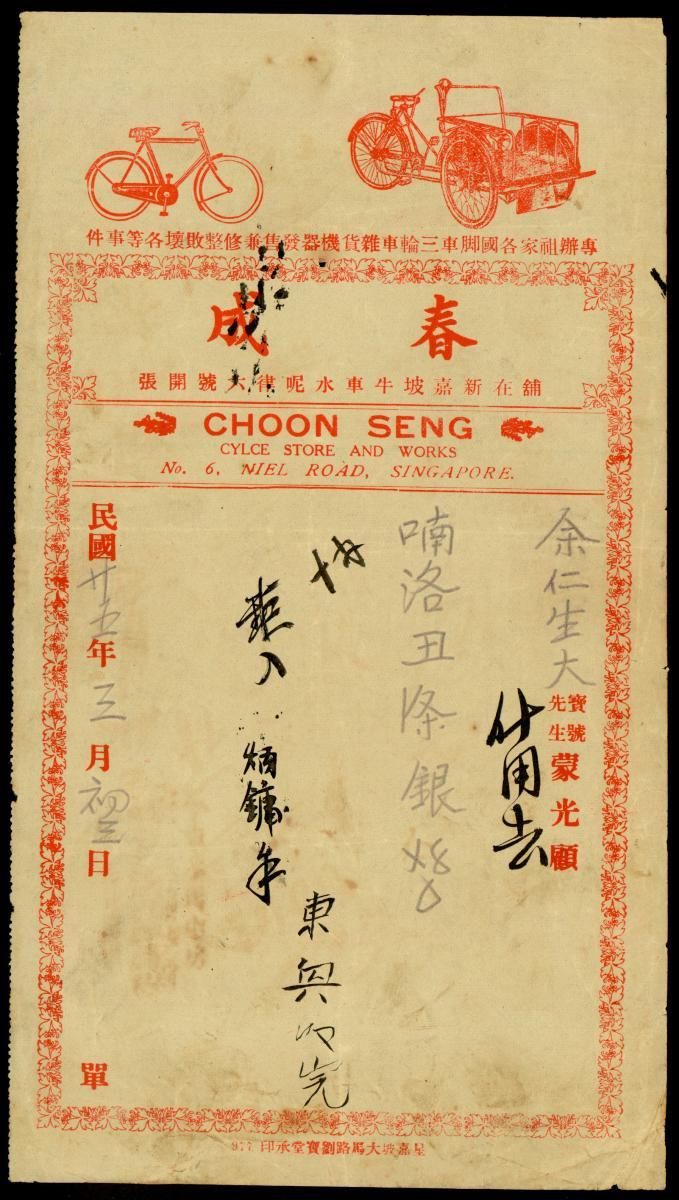 專辦祖家各國脚車三輪車雜貨機器發售兼修整敗壞各等事件
春成
舖在新嘉坡牛車水呢律六號開張
CHOON SENG
CYLCE STORE AND WORKS
No. 6, NIEL ROAD, SINGAPORE.
余仁生大
寶號
先生
蒙光顧
什用去
喃洛丑条銀
東興
炳鏞
民國廿五年三月初三日
單
星嘉坡大馬路劉寶堂承印 977